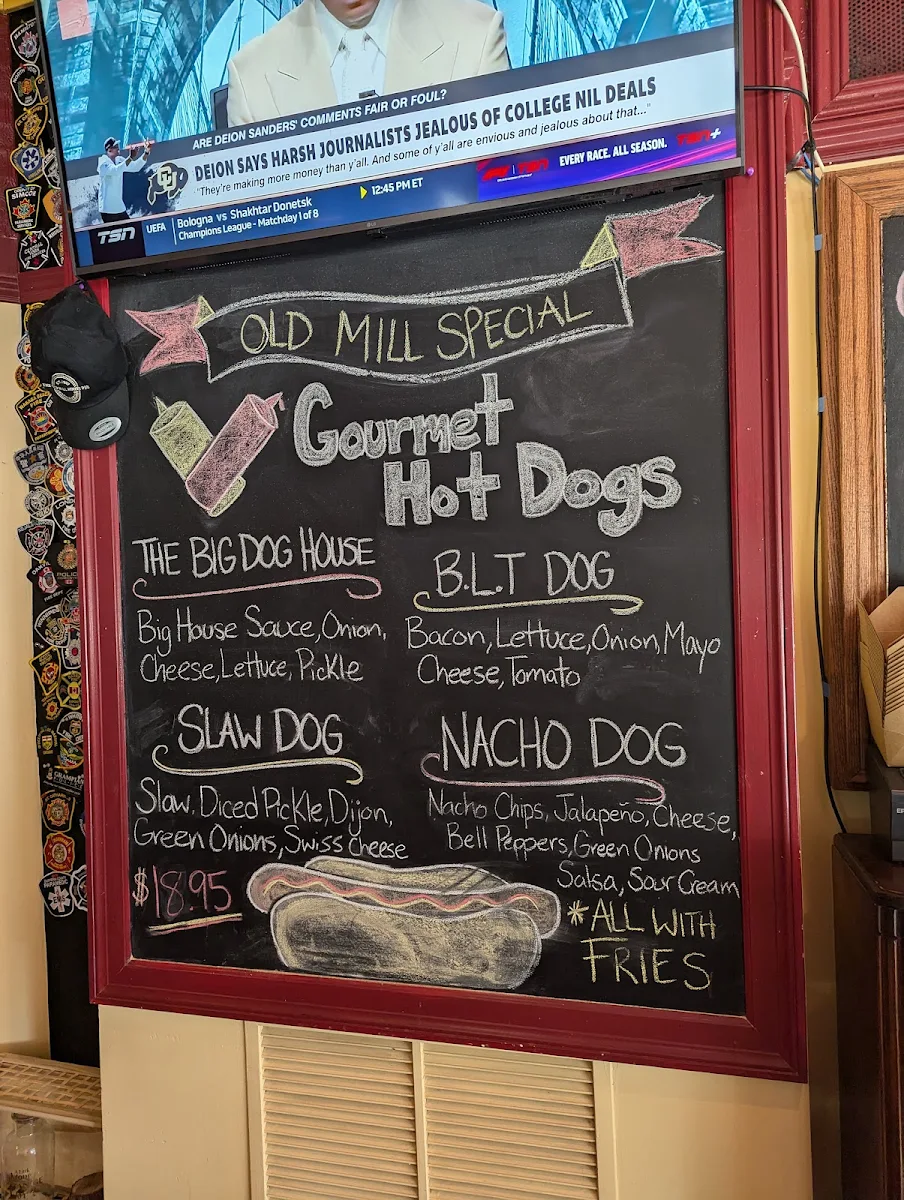 ARE DEION SANDERS' COMMENTS FAIR OR FOUL?
DEION SAYS HARSH JOURNALISTS JEALOUS OF COLLEGE NIL DEALS
"They're making more money than y'all. And some of y'all are envious and jealous about that..."
TSN
UEFA
Bologna vs Shakhtar Donetsk
Champions League - Matchday 1 of 8
12:45 PM ET
F1 TSN
EVERY RACE. ALL SEASON.
TSN+
OLD MILL SPECIAL
Gourmet
Hot Dogs
THE BIG DOG HOUSE
Big House Sauce, Onion,
Cheese, Lettuce, Pickle
B.L.T DOG
Bacon, Lettuce, Onion, Mayo
Cheese, Tomato
SLAW DOG
Slaw, Diced Pickle, Dijon,
Green Onions, Swiss Cheese
NACHO DOG
Nacho Chips, Jalapeño, Cheese,
Bell Peppers, Green Onions
Salsa, Sour Cream
$18.95
*ALL WITH
FRIES